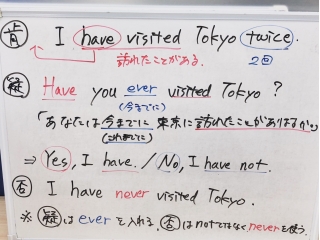 肯 I have visited Tokyo twice.
訪れたことがある. 2回
疑 Have you ever visited Tokyo ?
(今までに)
「あなたは今までに東京に訪れたことがありますか。」
(これまでに)
⇒ Yes, I have. / No, I have not.
否 I have never visited Tokyo.
※ 疑はeverを入れる. 否はnotではなくneverを使う.